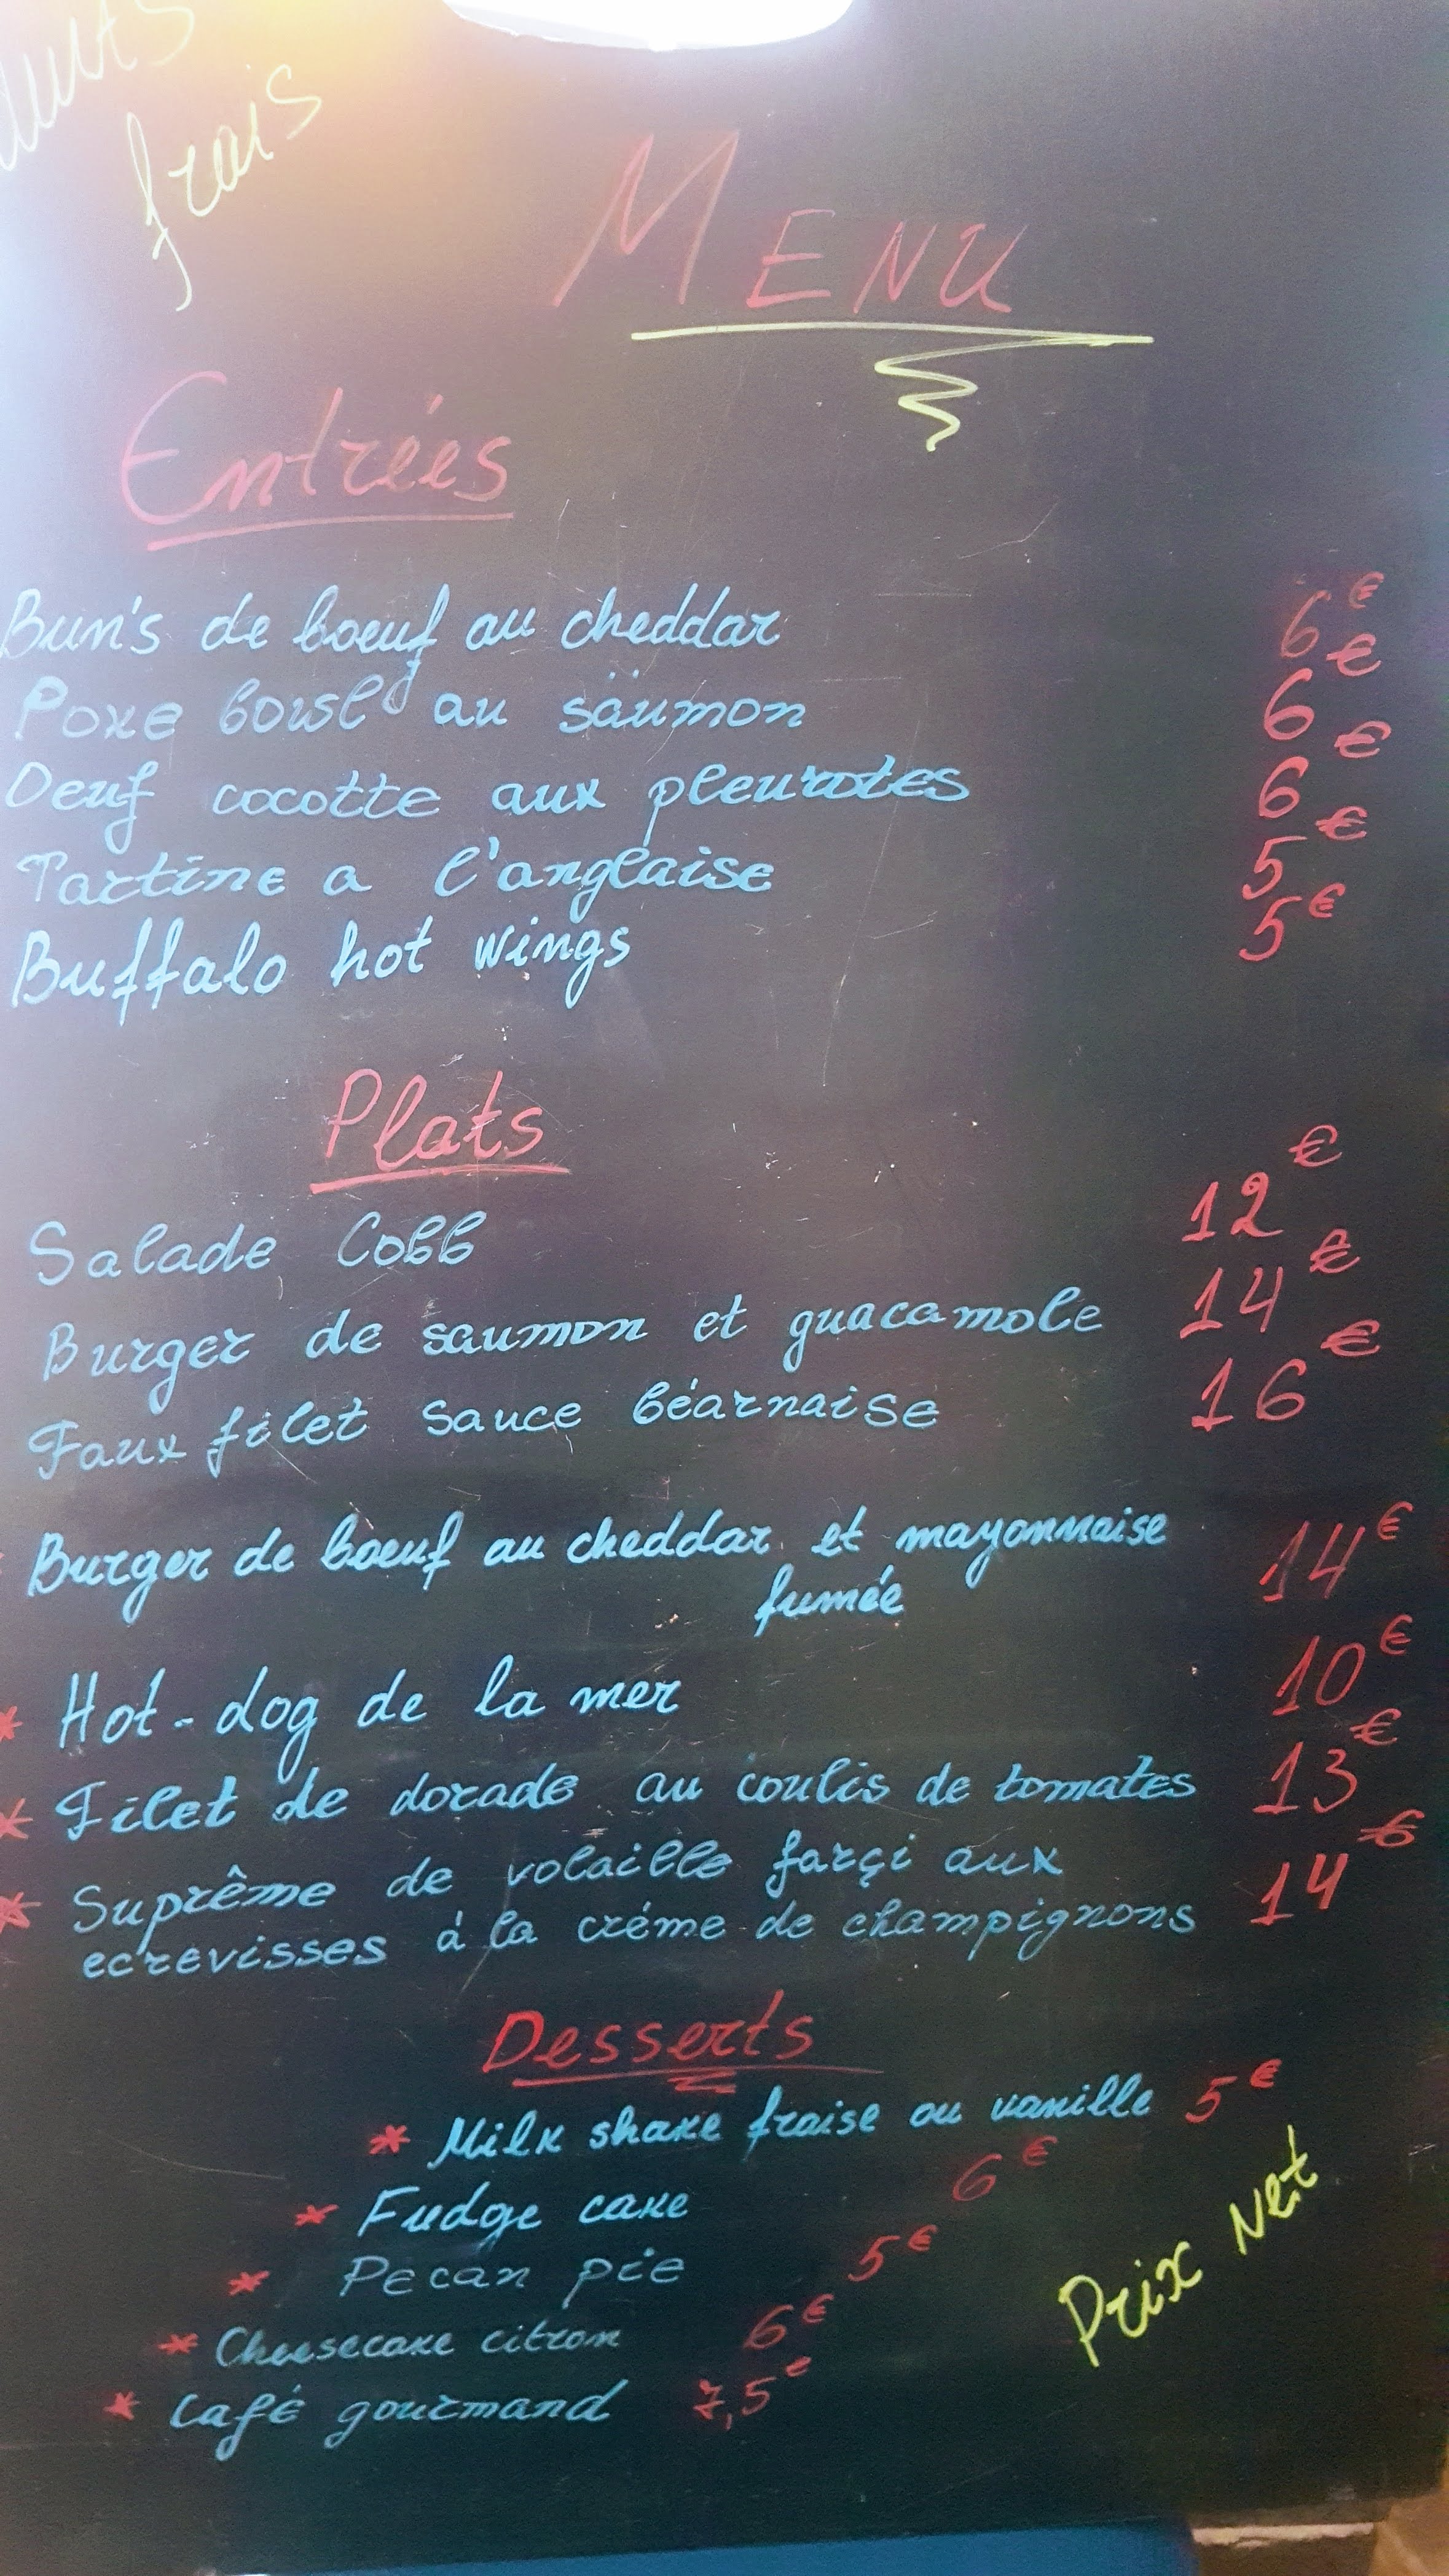 frais
MENU
Entrées
Bun's de boeuf au cheddar 6€
Poke bowl au saumon 6€
Oeuf cocotte aux pleurotes 6€
Tartine a l'anglaise 5€
Buffalo hot wings 5€
Plats
Salade Cobb 12€
Burger de saumon et guacamole 14€
Faux filet sauce béarnaise 16€
Burger de boeuf au cheddar et mayonnaise 14€
fumée
* Hot-dog de la mer 10€
* Filet de dorade au coulis de tomates 13€
* Suprême de volaille farçi aux 14€
ecrevisses á la créme de champignons
Desserts
* Milk shake fraise ou vanille 5€
* Fudge cake 6€
* Pecan pie 5€
* Cheesecake citron 6€
* Café gourmand 7,5€
Prix Net